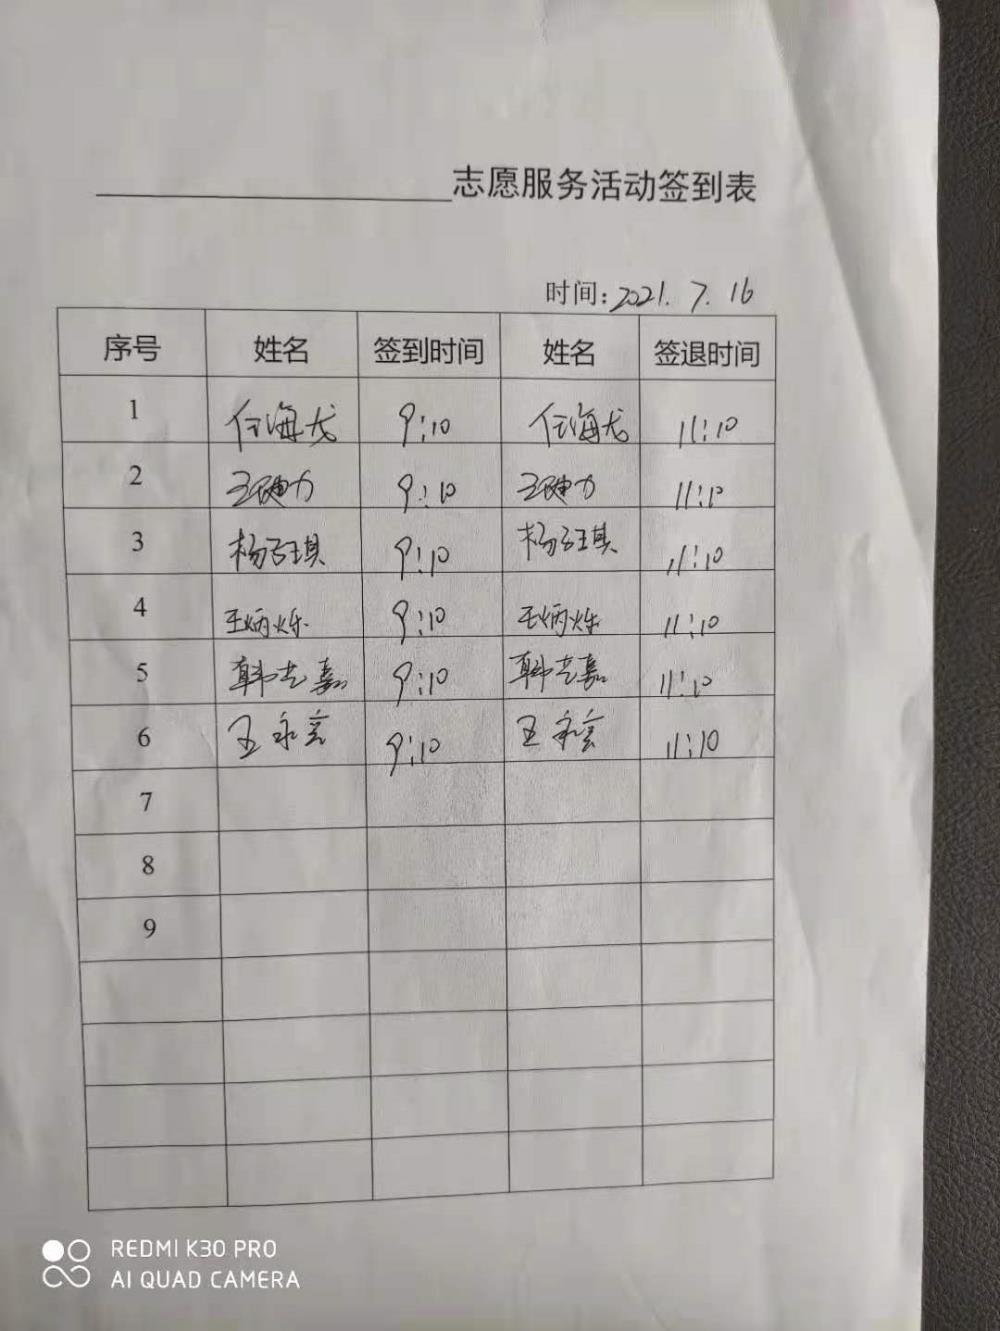 志愿服务活动签到表
时间:2021.7.16
序号 姓名 签到时间 姓名 签退时间
1 任海龙 9:10 任海龙 11:10
2 王建力 9:10 王建力 11:10
3 杨子琪 9:10 杨子琪 11:10
4 王炳烁 9:10 王炳烁 11:10
5 韩志嘉 9:10 韩志嘉 11:10
6 王永 9:10 王永 11:10
7
8
9
REDMI K30 PRO
AI QUAD CAMERA